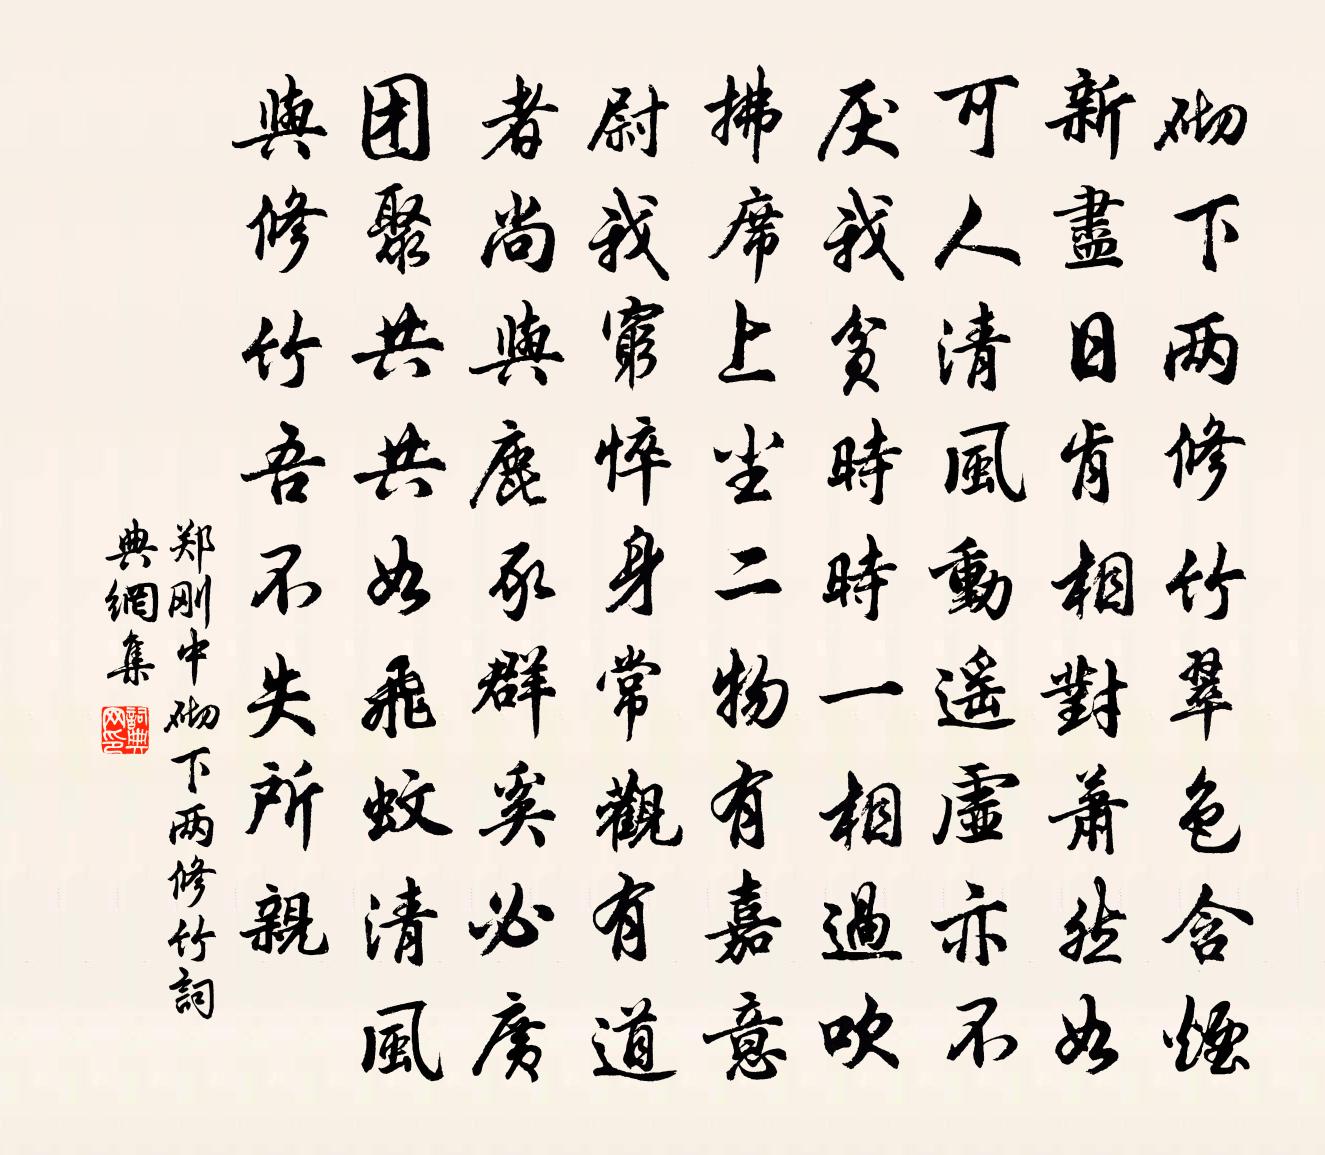 砌下两修竹翠色含煙
新盡日肯相對蕭然如
可人清風動遥虛亦不
厌我貧時時一相過吹
拂席上坐二物有嘉意
尉我窮悴身常觀有道
者尚與鹿豕群奚必廣
团聚共共如飛蚊清風
與修竹吾不失所親
郑剛中砌下两修竹詞
典網集
詞典网印